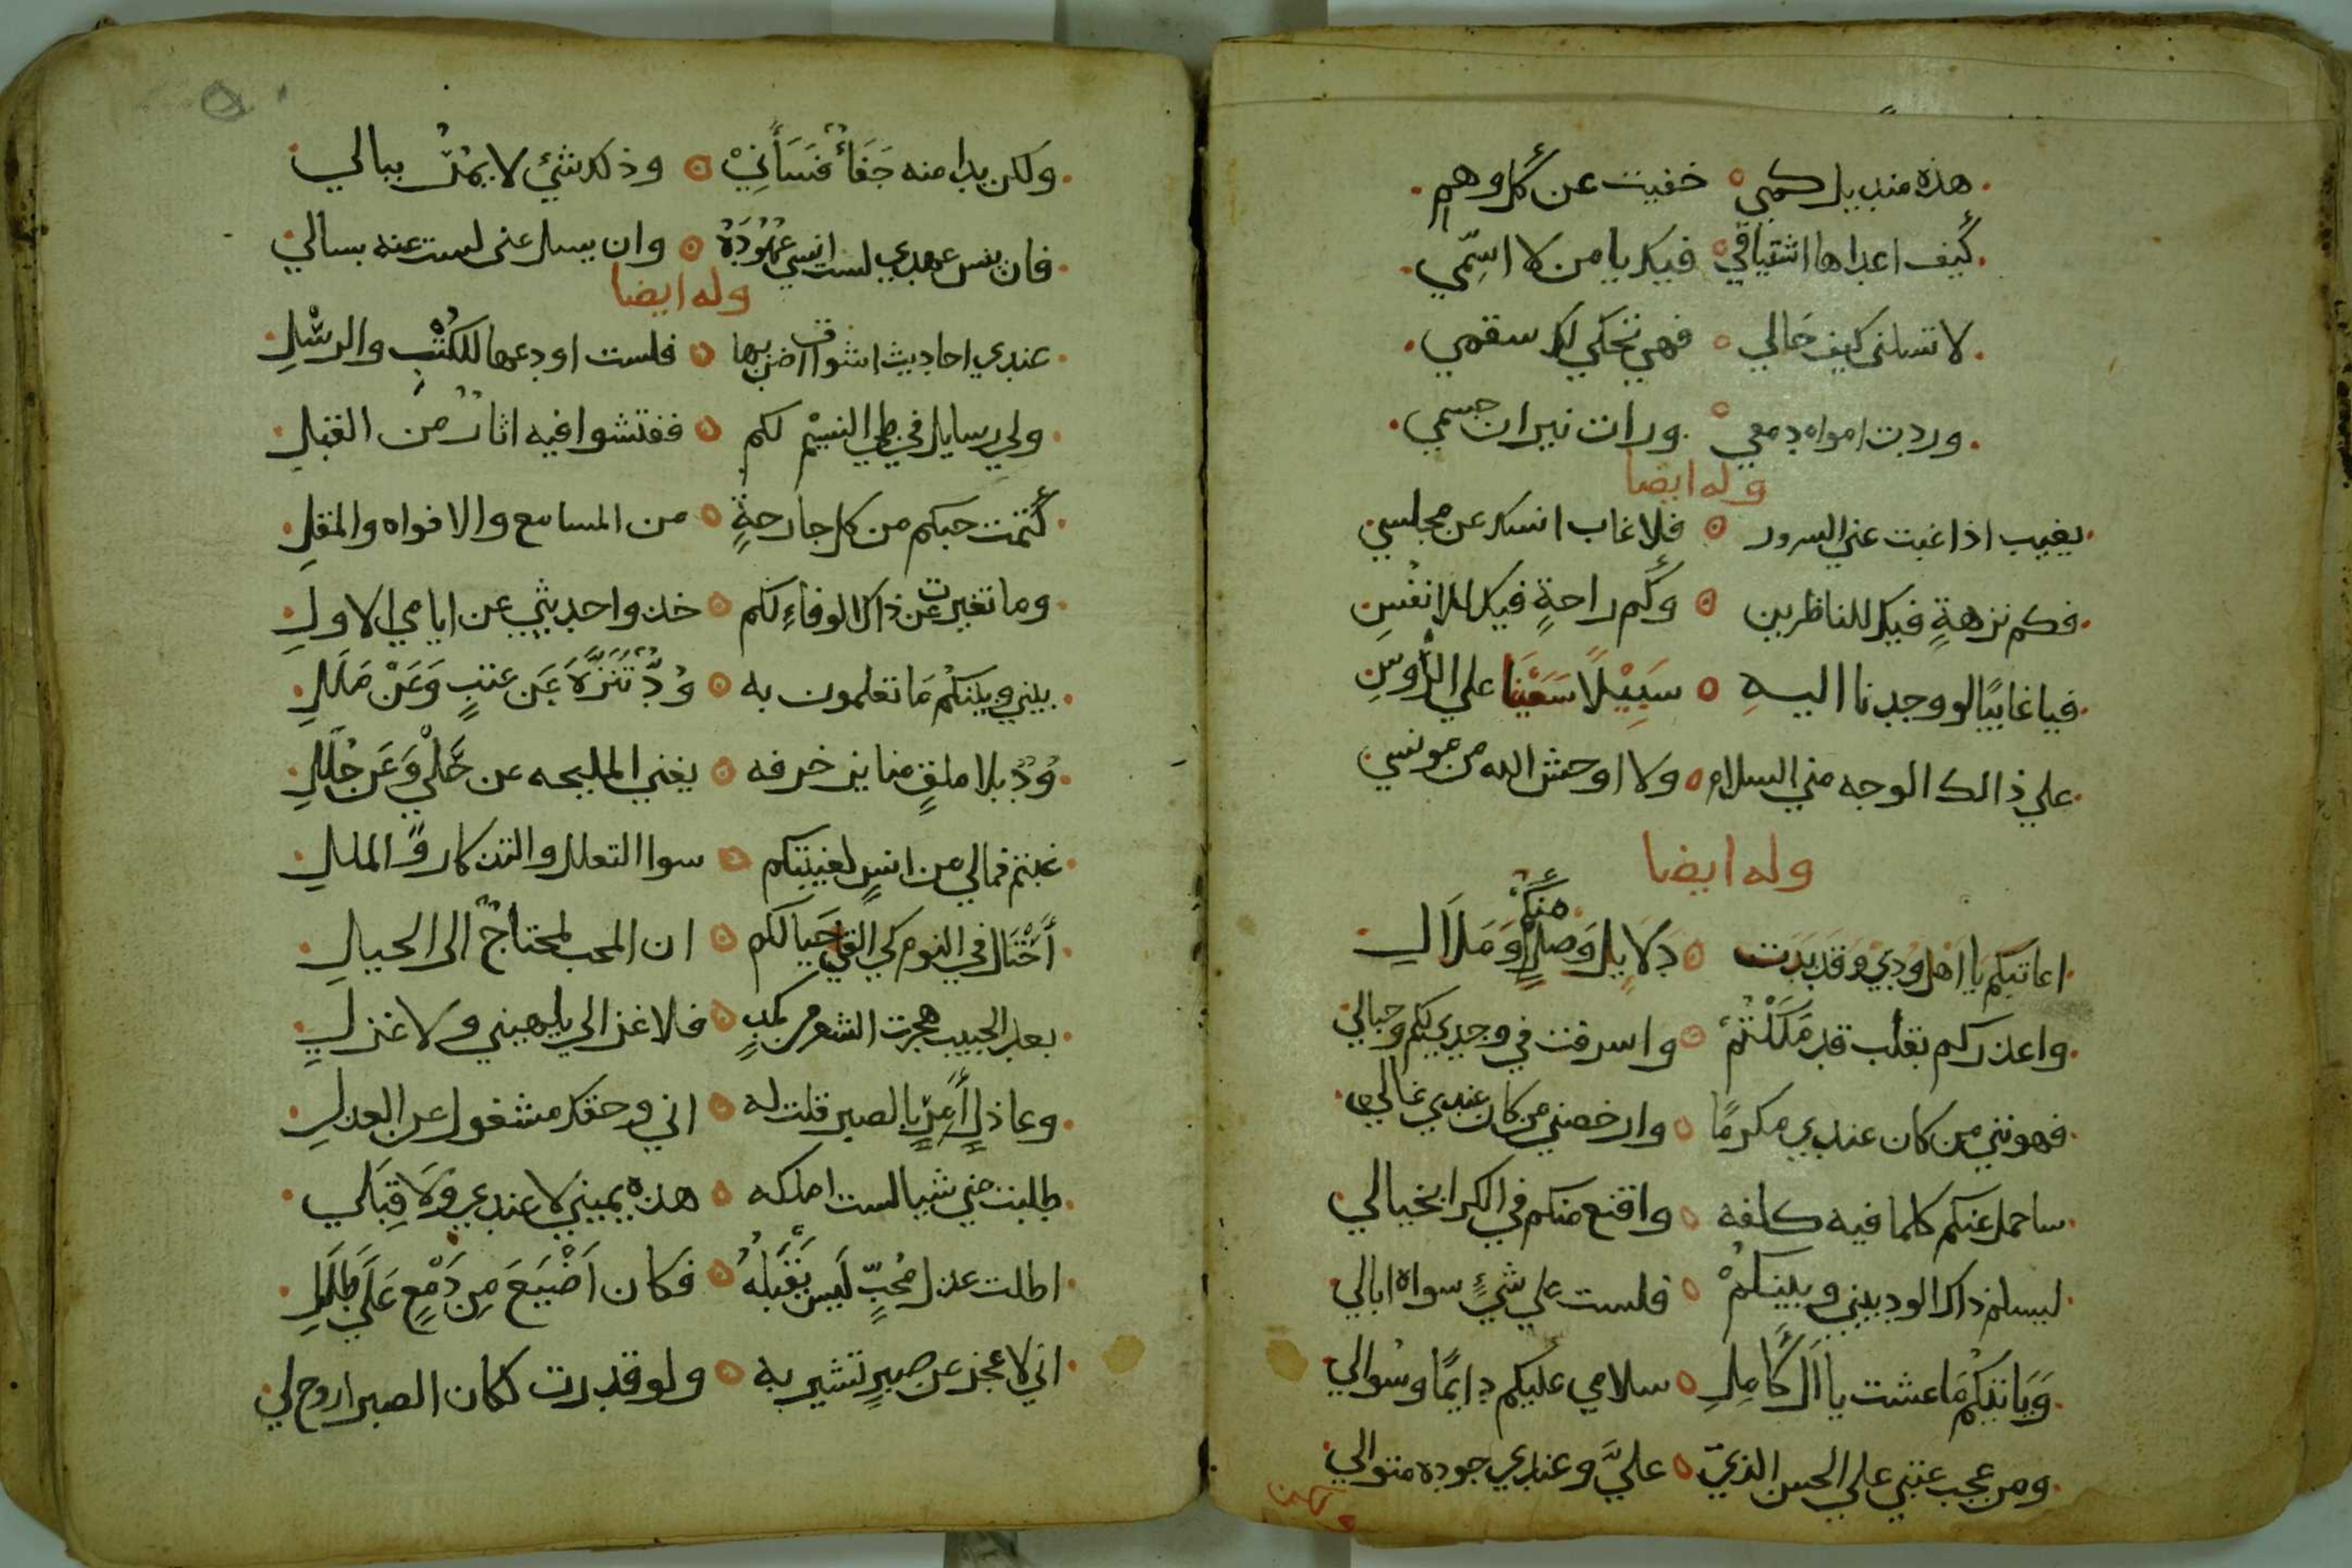 هذه منديل كمي ه خفيت عن كل وهم
كيف اعداها اشتياقي ه فيك يا من لا اسمي
لا تسلني كيف حالي ه فهي تحكي لك سقمي
وردت امواه دمعي ه ورات نيران جسمي
وله ايضا
يغيب اذا غبت عني السرور ه فلا غاب انسك عن مجلسي
فكم نزهةٍ فيك للناظرين ه وكم راحةٍ فيك للانفسِ
فيا غايبًا لو وجدنا اليهِ ه سَبِيْلًا سَعَيْنَا علي الرأوسِ
علي ذالك الوجه مني السلام ه ولا اوحش الله من مونسي
وله ايضا
اعاتبكم يا اهل ودي وقد بدت ه دلايل وصلٍ منكم وملال
واعذركم بقلب قد ملكتم ه واسرفت في وجدي بكم وحبالي
فهونني من كان عندي مكرمًا ه وارخصني من كان عندي غالي
ساحمل عنكم كلما فيه كلفه ه واقنع منكم في الكرا بخيالي
ليسلم ذاك الود بيني وبينكمْ ه فلست علي شيءٍ سواه ابالي
وياتيكم ما عشت يا آل كامل ه سلامي عليكم دايمًا وسوالي
ومن عجب عتبي علي الحسن الذي ه عليَّ وعندي جوده متوالي
ولكن بدا منه جَفَاءٌ فَسَأَنِيْ ه وذلك شئ لا يمُرّ ببالي
فان ينس عهدي لست انسي عهُودَهُ ه وان يسل عني لست عنه بسالي
وله ايضا
عندي احاديث اشواق اضن بها ه فلست اودعها للكُتْبِ والرسْلِ
ولي رسايل في طي النسيْم لكم ه ففتشوا فيه اثار من القبل
كتمت حبكم من كل جارحةٍ ه من المسامع والافواه والمقل
وما تغيرت عن ذاك الوفاءِ لكم ه خذوا حديثي عن ايامي الاول
بيني وبينكم مَا تعلمون به ه وُدٌّ تَنَزَّهَ عَن عتبٍ وَعَنْ مَلَلِ
وُدٌ بلا ملقٍ منا يزخرفه ه يغني المليحه عن حَلْيٍ وَعَن حُلَلِ
غبتم فمالي من انسٍ لغيبتكم ه سوا التعلل والتذكار و الملل
أَحْتَال في النوم كي القي خَيالكم ه ان المحب لمحتاجٌ الى الحيال
بعد الحبيب هجرت الشعر من كمدٍ ه فلا غزالي يلهيني ولا غزل
وعاذلٍ أَمِرٍ بالصبر قلت له ه اني وحقك مشغول عن العذلِ
طلبت مني شيا لست املكه ه هذه يميني لا عندي ولا قِبَلي
اطلت عذل مُحبٍّ لَيس يَقْبَلهُ ه فكان اَضْيَعَ مِن دَمْعٍ عَلَى طَلَلِ
اني لاعجز عن صبرٍ تشير به ه ولو قدرت لكان الصبر اروح لي